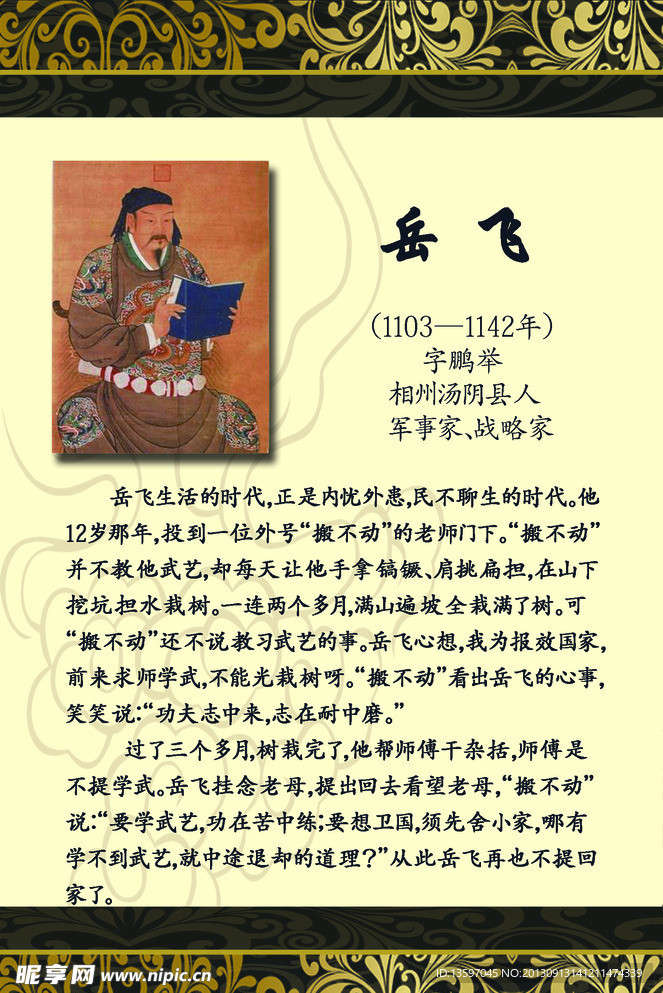 岳飞
（1103—1142年）
字鹏举
相州汤阴县人
军事家、战略家
岳飞生活的时代,正是内忧外患,民不聊生的时代。他
12岁那年,投到一位外号“搬不动”的老师门下。“搬不动”
并不教他武艺,却每天让他手拿镐镢、肩挑扁担,在山下
挖坑担水栽树。一连两个多月,满山遍坡全栽满了树。可
“搬不动”还不说教习武艺的事。岳飞心想,我为报效国家,
前来求师学武,不能光栽树呀。“搬不动”看出岳飞的心事,
笑笑说:“功夫志中来,志在耐中磨。”
过了三个多月,树栽完了,他帮师傅干杂括,师傅是
不提学武。岳飞挂念老母,提出回去看望老母,“搬不动”
说:“要学武艺,功在苦中练;要想卫国,须先舍小家,哪有
学不到武艺,就中途退却的道理?”从此岳飞再也不提回
家了。
昵享网 www.nipic.cn
ID:13597045 NO:20130913141211474339